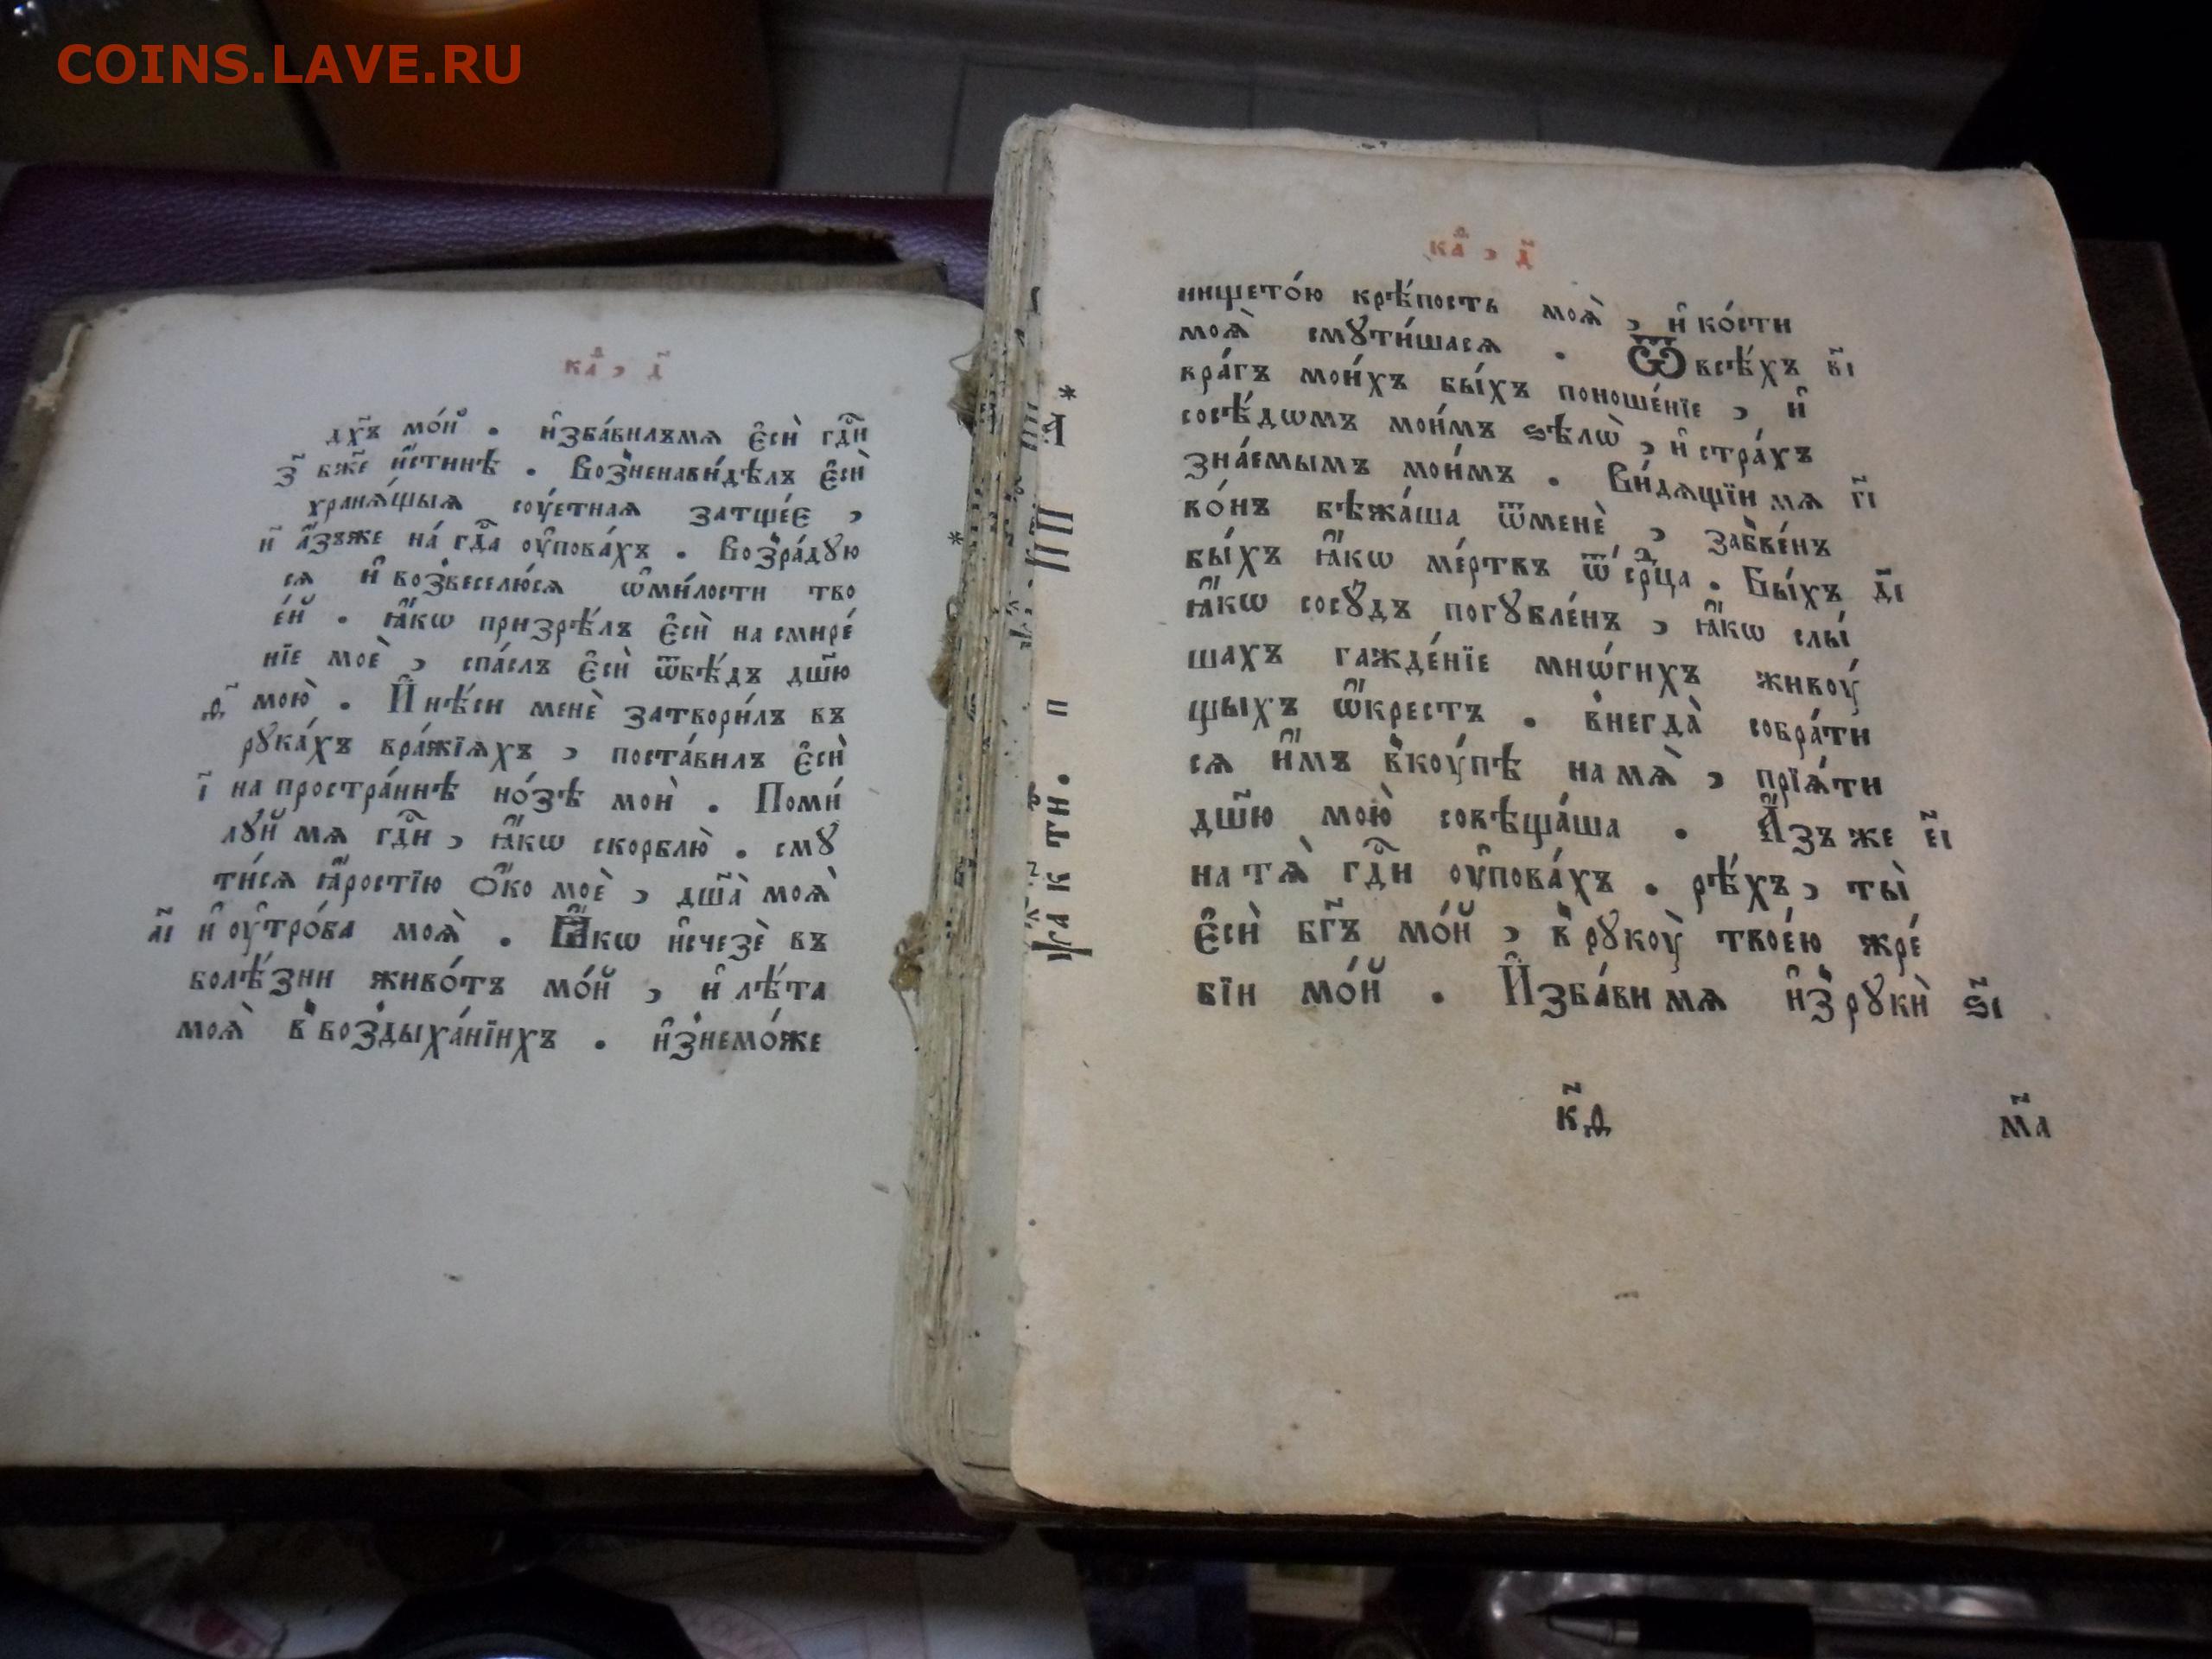 COINS.LAVE.RU
ка҃д , д҃
дх҃ъ мо́й . и҆зба́вилъмѧ є҆сѝ гдⷭ҇и
з҃ бж҃е и҆́стинѣ . Воз̾ненави́дѣлъ є҆сѝ
хранѧ́щыѧ соу́етнаѧ затщéє ,
и҃ а҆́зъже на́ гдⷭ҇а оу҆пова́хъ . Воз̾ра́дꙋю
сѧ и҆ воз̾веселю́сѧ ѡ҆ми́лости тво
е́й . ꙗ҆́кѡ призрѣ́лъ є҆сѝ на смире́
нїе моѐ , спа́слъ є҆сѝ ѿбѣ́дъ дш҃ю
ѳ҃ мою̀ . И҆ нѣ́си менѐ затвори́лъ въ
рꙋка́хъ вра́жїѧхъ , поста́вилъ є҆сѝ
і҃ на простра́ннѣ но́зѣ моѝ . Поми́
лꙋй мѧ гдⷭ҇и , ꙗ҆́кѡ скорблю̀ . смꙋ
ти́сѧ ꙗ҆́ростїю ѻ҆́ко моѐ , дш҃а̀ моѧ̀
а҃і и҆ оу҆тро́ба моѧ̀ . Ꙗ҆́кѡ и҆счезѐ въ
болѣ́зни живо́тъ мо́й , и҆ лѣ́та
моѧ̀ в̾ воз̾дыха́нїихъ . и҆з̾немо́же
нището́ю крѣ́пость моѧ̀ , и҆ ко́сти
моѧ̀ смꙋти́шасѧ . Ѿ всѣ́хъ в҃і
вра́гъ мои́хъ бы́хъ поноше́нїе , и҆
сосѣ́дѡмъ мои́мъ ѕѣлѡ̀ , и҆ стра́хъ
зна́емымъ мои́мъ . Ви́дѧщїи мѧ г҃і
во́нъ бѣжа́ша ѿменѐ , заб̾ве́нъ
бы́хъ ꙗ҆́кѡ ме́ртвъ ѿ се́рⷣца . Бы́хъ д҃і
ꙗ҆́кѡ сосꙋ́дъ погꙋбле́нъ , ꙗ҆́кѡ слы́
шахъ гажде́нїе мнѡ́гихъ живоу́
щыхъ ѡ҆́крестъ . в̾негда̀ собра́ти
сѧ и҆̀мъ в̾коу́пѣ на мѧ̀ , прїѧ́ти
дш҃ю мою̀ совѣща́ша . А҆́зъ же е҃і
на тѧ̀ гдⷭ҇и оу҆пова́хъ . рѣ́хъ , ты̀
є҆сѝ бг҃ъ мо́й , в̾ рꙋкоу̀ твое́ю жре́
бїи мо́й . И҆зба́ви мѧ и҆з̾ рꙋкѝ ѕ҃і
к҃д
м҃а